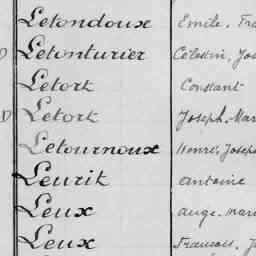 Letondoux Emile, Fra
D Letonturier Célestin, Jos
Letort Constant
D Letort Joseph, Mar
Letournoux Henri, Joseph
Leurit Antoine
Leux Ange, Marie
Leux Francois, J